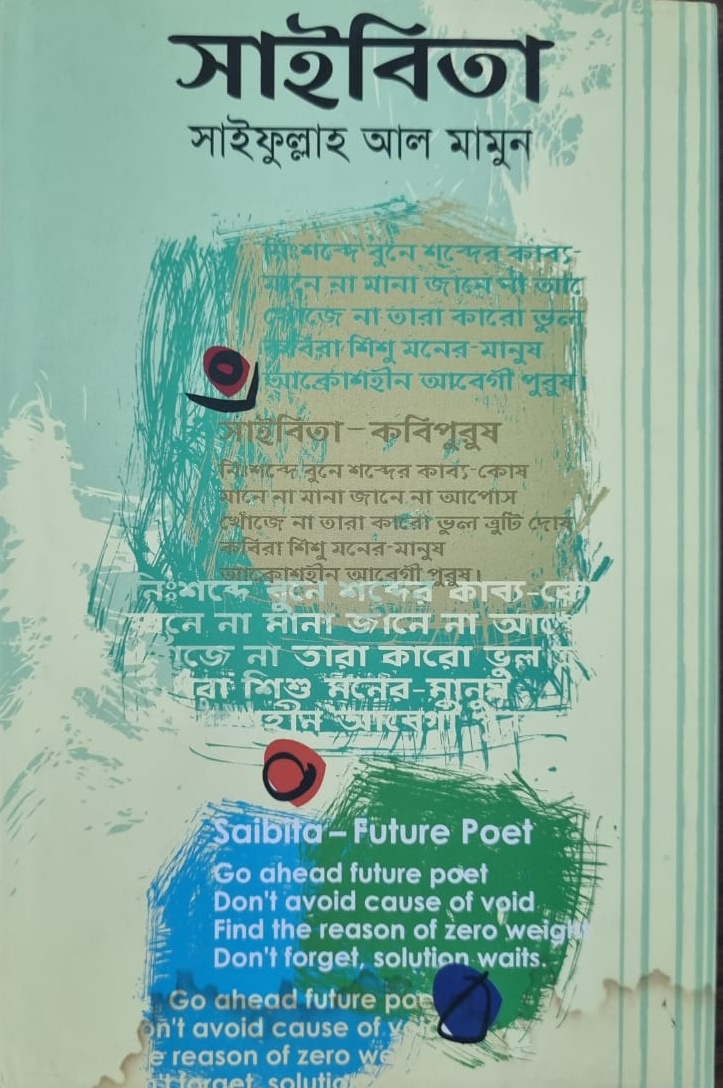 সাইবিতা
সাইফুল্লাহ আল মামুন
নিঃশব্দে বুনে শব্দের কাব্য-
মানে না মানা জানে না আপে
খোঁজে না তারা কারো ভুল
কবিরা শিশু মনের-মানুষ
আক্রোশহীন আবেগী পুরুষ।
সাইবিতা – কবিপুরুষ
নিঃশব্দে বুনে শব্দের কাব্য-কোষ
মানে না মানা জানে না আপোস
খোঁজে না তারা কারো ভুল ত্রুটি দোষ
কবিরা শিশু মনের-মানুষ
আক্রোশহীন আবেগী পুরুষ।
নিঃশব্দে বুনে শব্দের কাব্য-কো
মানে না মানা জানে না আপো
জে না তারা কারো ভুল
রা শিশু মনের-মানুষ
হীন আবেগী
Saibita – Future Poet
Go ahead future poet
Don't avoid cause of void
Find the reason of zero weight
Don't forget, solution waits.
Go ahead future poe
on't avoid cause of void
e reason of zero we
't forget, solutio